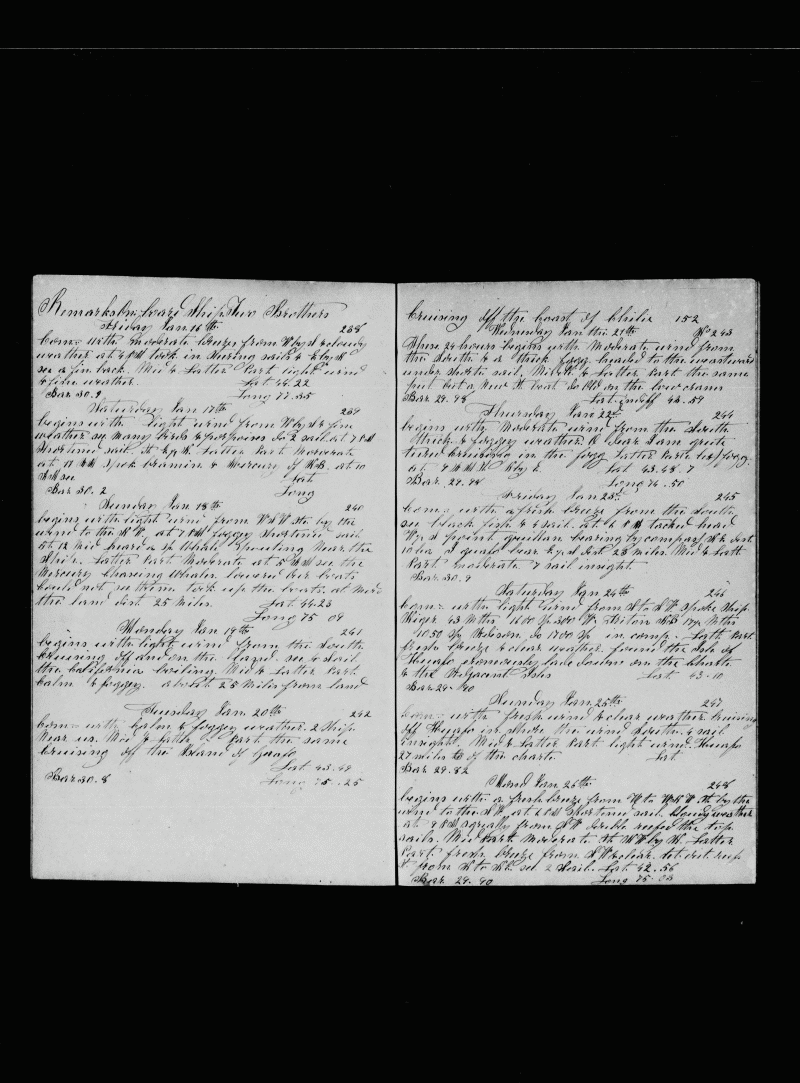 Remarks On board Ship Two Brothers
Friday Jan 16th 238
com= with moderate breeze from W by S & cloudy
weather at 4 PM took in steering sails &
see a fin back. Mid & Latter Part light wind
& fine weather. Lat 44.22
Bar 30.9 Long 77.35
Saturday Jan 17th 239
begins with light wind from W by S & fine
weather see many birds & porpoises 2 sail at 7 PM
shortened sail Latter Part Moderate
at 11 AM spok bramin & Mercury of N.B. at 10
AM see Lat
Bar 30.2 Long
Sunday Jan 18th 240
begins with light wind from W S W by the
wind to the N W. at 7 PM foggy shortened sail
at 12 Mid heard a Sp Whale Spouting Near the
Ship. Latter Part Moderate at 5 AM see the
Mercury chasing Whales lowered our boats
could not see them took up the boats. at Meri
the land dist 25 Miles. Lat 44.23
Long 75 09
Monday Jan 19th 241
begins with light wind from the South
Cruising off and on the land. see 4 sail
the California boiling. Mid & Latter Part
Calm & foggy. about 25 Miles from land
Tuesday Jan 20th 242
Com= with calm & foggy weather. 2 Ships
Near us. Mid & Latter Part the same
Cruising off the Island of Guafo
Lat. 43.49
Bar 30.8 Long 75.25
Cruising off the Coast of Chilie 152
Wensday Jan the 21th No 243
These 24 hours begins with Moderate wind from
the South & a thick fogg headed to the westward
under short sail. Mid & Latter Part the same
but
Bar 29.98 Lat 43.59
Thursday Jan 22d 244
begins with Moderate wind from the South
thick & foggy weather O dear I am quite
tired cruising in the fogg Latter Part foggy.
at Lat 43.48.7
Bar. 29.98 Long 76.50
Friday Jan 23d 245
com= with a fresh breeze from the South
see black fish & 4 sail. at 6 PM tacked head
W by S point quillan bearing by compass dist
10 lea guafo bear dist 23 miles. Mid & Latt
Part moderate 7 sail insight
Bar 30.9
Saturday Jan 24th 246
com= with light wind from S to S W. spoke Ship
Niger 43 Mths 1600 Sp 300 W. Triton NB 17 Mths
1050 Sp Hobson 1700 Sp in comp. Latt Part
fresh breeze & clear weather. found the Isle of
Huafo eroneously laid down on the Charts
& the Adjacent Isles Lat. 43.10
Bar 29.90
Sunday Jan 25th 247
Com= with fresh wind & clear weather cruising
off Huafo in shore the wind South. 4 sail
insight. Mid & Latter Part light wind. Huafo
27 miles of the charts. Lat
Bar 29.82
Mond Jan 26th 248
begins with a fresh breeze from W to W N W by the
wind to the S W. at 6 PM shortened sail. Cloudy weather
at 9 PM squally from S W double reefed the top
sails. Mid Part Moderate W by N. Latter
Part fresh breeze from S W clear. let out reefs
from see 2 Sail. Lat 42.56
Bar 29.90 Long 75.03